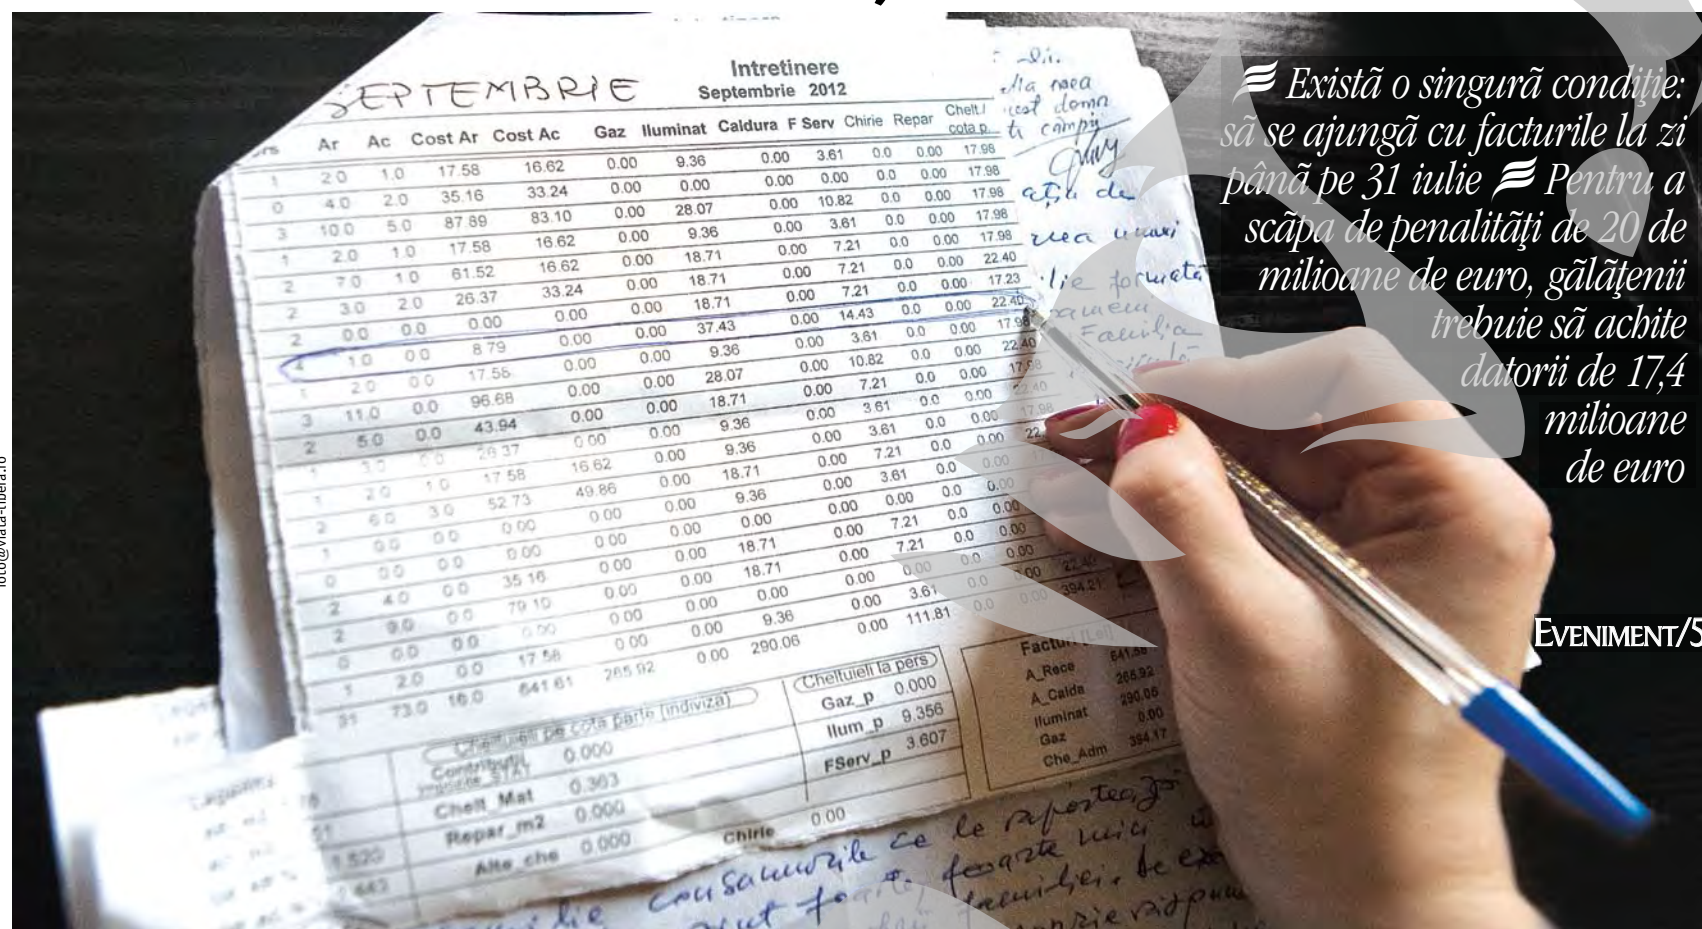 Existã o singurã condiţie:
sã se ajungã cu facturile la zi
pânã pe 31 iulie Pentru a
scãpa de penalitãţi de 20 de
milioane de euro, gãlãţenii
trebuie sã achite
datorii de 17,4
milioane
de euro
EVENIMENT/5
foto@viata-libera.ro
SEPTEMBRIE
Intretinere
Septembrie 2012
Ar Ac Cost Ar Cost Ac Gaz Iluminat Caldura F Serv Chirie Repar Chelt./ cota p.
1 2.0 1.0 17.58 16.62 0.00 9.36 0.00 3.61 0.0 0.00 17.98
0 4.0 2.0 35.16 33.24 0.00 0.00 0.00 0.00 0.0 0.00 17.98
3 10.0 5.0 87.89 83.10 0.00 28.07 0.00 10.82 0.0 0.00 17.98
1 2.0 1.0 17.58 16.62 0.00 9.36 0.00 3.61 0.0 0.00 17.98
2 7.0 1.0 61.52 16.62 0.00 18.71 0.00 7.21 0.0 0.00 17.98
2 3.0 2.0 26.37 33.24 0.00 18.71 0.00 7.21 0.0 0.00 22.40
2 0.0 0.0 0.00 0.00 0.00 18.71 0.00 7.21 0.0 0.00 17.23
4 1.0 0.0 8.79 0.00 0.00 37.43 0.00 14.43 0.0 0.00 22.40
2.0 0.0 17.58 0.00 0.00 9.36 0.00 3.61 0.0 0.00 17.98
3 11.0 0.0 96.68 0.00 0.00 28.07 0.00 10.82 0.0 0.00 22.40
2 5.0 0.0 43.94 0.00 0.00 18.71 0.00 7.21 0.0 0.00
1 3.0 0.0 26.37 0.00 0.00 9.36 0.00 3.61 0.0 0.00
1 2.0 1.0 17.58 16.62 0.00 9.36 0.00 3.61 0.0 0.00
2 6.0 3.0 52.73 49.86 0.00 18.71 0.00 7.21 0.0 0.00
1 0.0 0.0 0.00 0.00 0.00 9.36 0.00 3.61 0.0 0.00
0 0.0 0.0 0.00 0.00 0.00 0.00 0.00 0.00 0.0 0.00
2 4.0 0.0 35.16 0.00 0.00 18.71 0.00 7.21 0.0 0.00
2 9.0 0.0 79.10 0.00 0.00 18.71 0.00 7.21 0.0 0.00
0 0.0 0.0 0.00 0.00 0.00 0.00 0.00 0.00 0.0 0.00
1 2.0 0.0 17.58 0.00 0.00 9.36 0.00 3.61 0.0 0.00 22.40
31 73.0 16.0 641.61 265.92 0.00 290.06 0.00 111.81 0.0 0.00 394.21
Cheltuieli pe cota parte [indiviza]
Contributii 0.000
Chelt_Mat 0.363
Repar_m2 0.000
Alte_che 0.000
Chirie 0.00
Cheltuieli la pers
Gaz_p 0.000
Ilum_p 9.356
FServ_p 3.607
Facturi [Lei]
A_Rece
A_Calda 265.92
Iluminat 290.06
Gaz 0.00
Che_Adm 394.17
formata
Familia
consumurile ce le
foarte mici